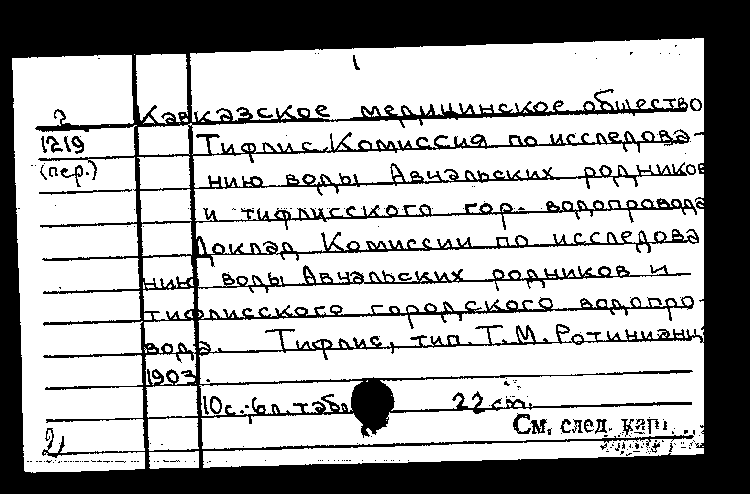 1
? Кавказское медицинское общество
1219 Тифлис. Комиссия по исследова-
(пер.) нию воды Авчальских родников
и тифлисского гор. водопровода
Доклад Комиссии по исследова
нию воды Авчальских родников и
тифлисского городского водопро-
вода. Тифлис, тип. Т.М. Ротинианц
1903.
10с.; 6л. табл. 22 см.
См. след. карт.
21